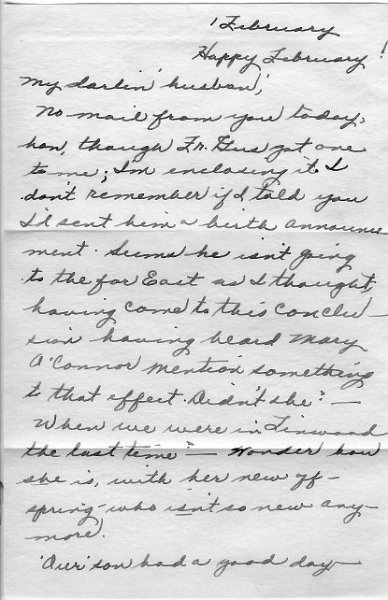 1 February
Happy February!
My darlin' husband,
No mail from you today,
hon, though Fr. Gus got one
to me; I'm enclosing it. I
don't remember if I told you
I'd sent him a birth announce
ment. Seems he isn't going
to the far East as I thought,
having come to this conclu-
sion having heard Mary
O'Connor mention something
to that effect. Didn't she? —
When we were in Linwood
the last time? — Wonder how
she is, with her new off-
spring - who isn't so new any-
more.
'Our' son had a good day -